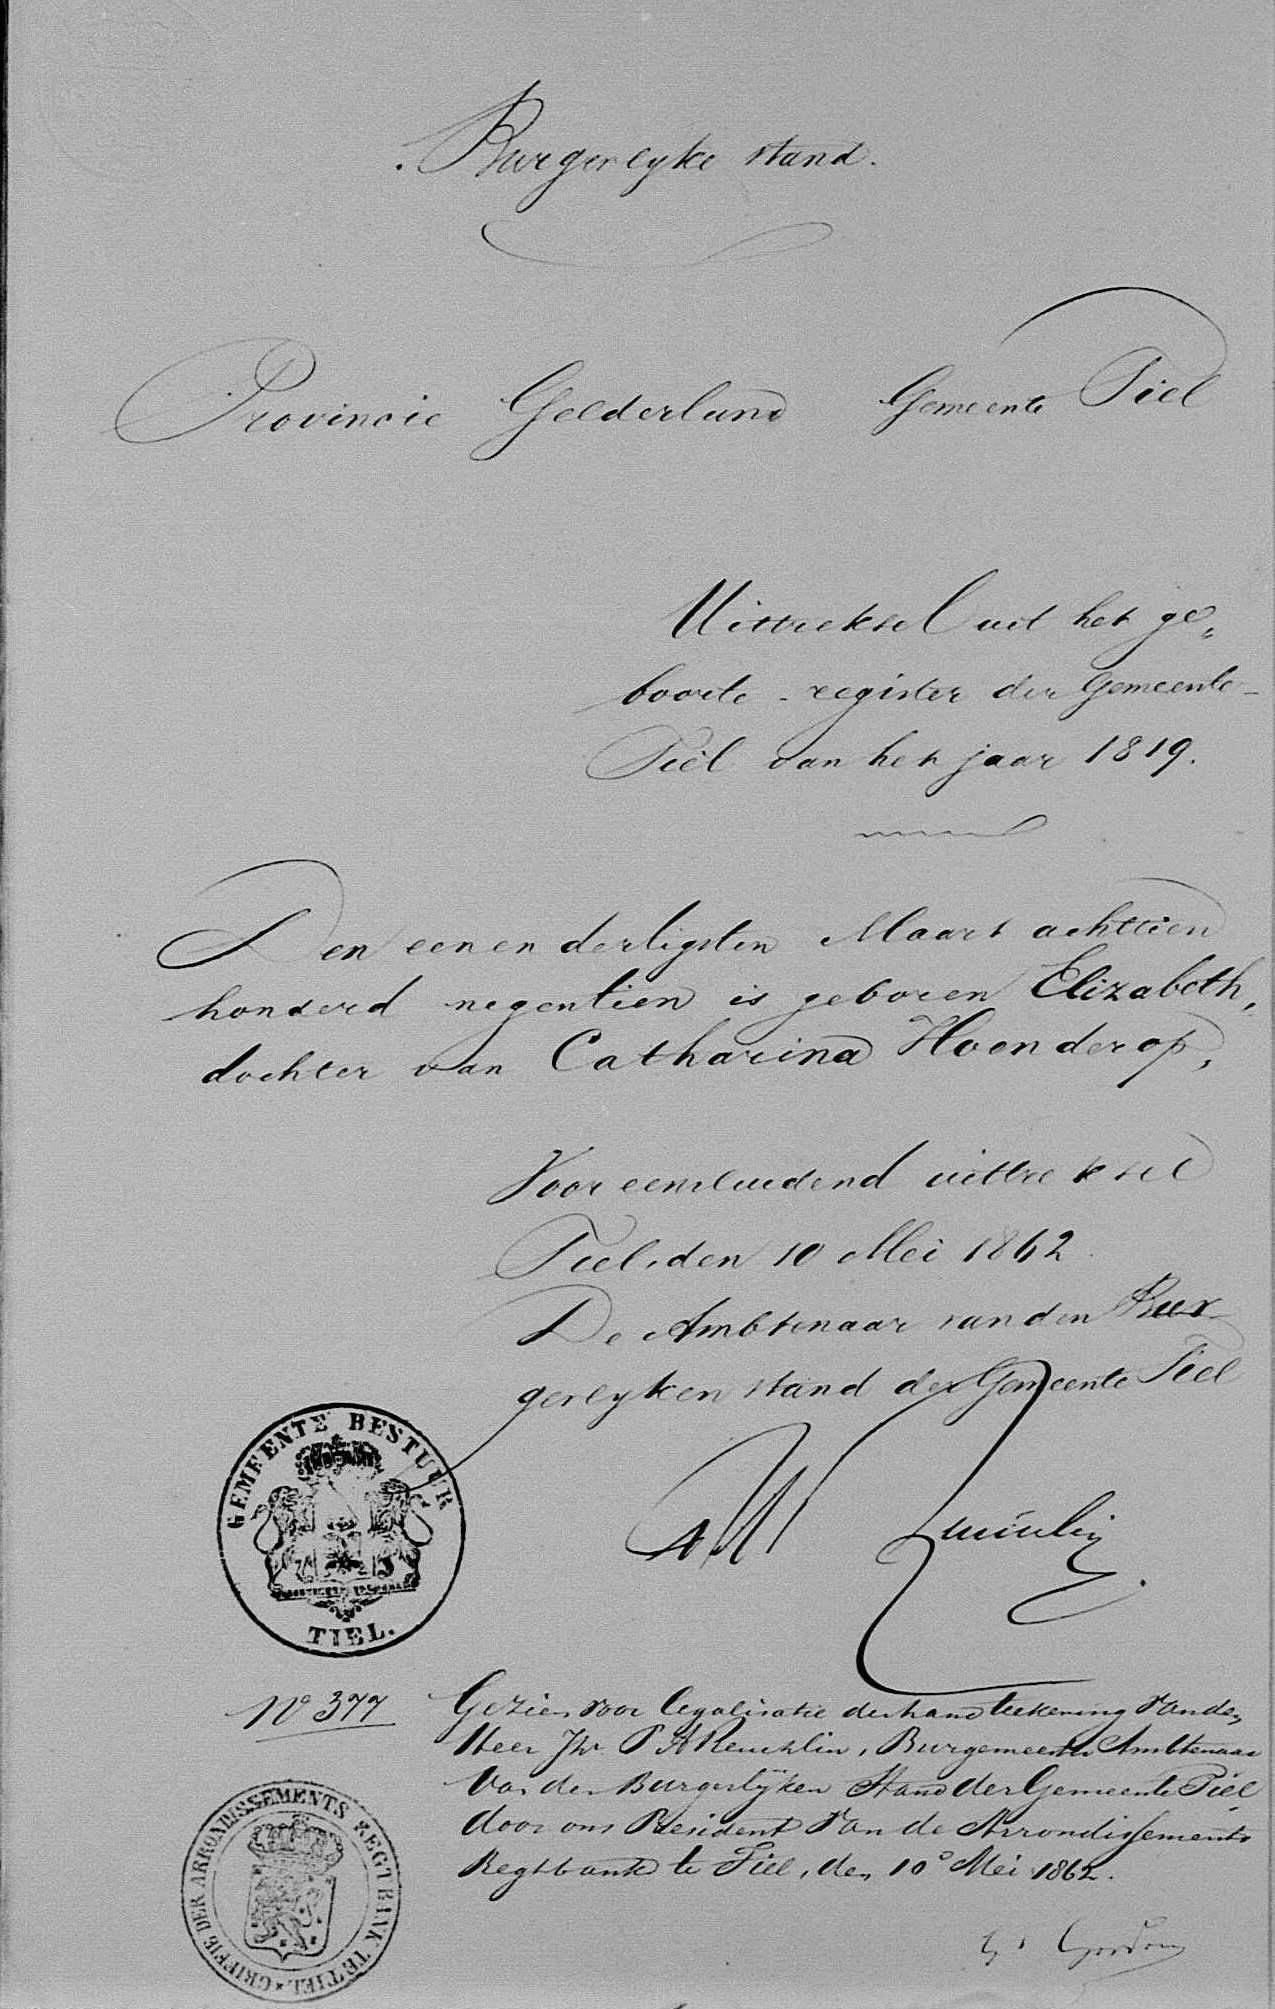 Burgerlyke stand.
Provincie Gelderland Gemeente Tiel
Uittreksel uit het ge„
boorte-register der Gemeente
Tiel van het jaar 1819.
Den eenendertigsten Maart achttien
honderd negentien is geboren Elizabeth,
dochter van Catharina Hoenderop,
Voor eensluidend uittreksel
Tiel, den 10 Mei 1862
De Ambtenaar van den Bur
gerlyken stand der Gemeente Tiel
GEMEENTE BESTUUR
TIEL.
No 377
Gezien voor legalisatie der handteekening van den
Heer Jhr P A Reuchlin, Burgemeester Ambtenaar
Van den Burgerlijken Stand der Gemeente Tiel
door ons President van de Arrondissements
Regtbank te Tiel, den 10o Mei 1862.
GRIFFIE DER ARRONDISSEMENTS REGTBANK TE TIEL